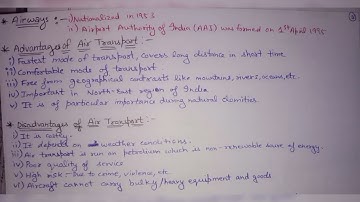 * Airways :- i) Nationalized in 1953
ii) Airport Authority of India (AAI) was formed on 1st April 1995
* Advantages of Air Transport :-
i) Fastest mode of transport, covers long distance in short time
ii) Comfortable mode of transport
iii) Free from geographical contrasts like mountains, rivers, oceans, etc.
iv) Important in North-East region of India
v) It is of particular importance during natural calamities.
* Disadvantages of Air Transport :-
i) It is costly.
ii) It depends on weather conditions.
iii) Air transport is run on petroleum which is non-renewable source of energy.
iv) Poor quality of service
v) High risk:- Due to crime, violence, etc
vi) Aircraft cannot carry bulky/heavy equipment and goods